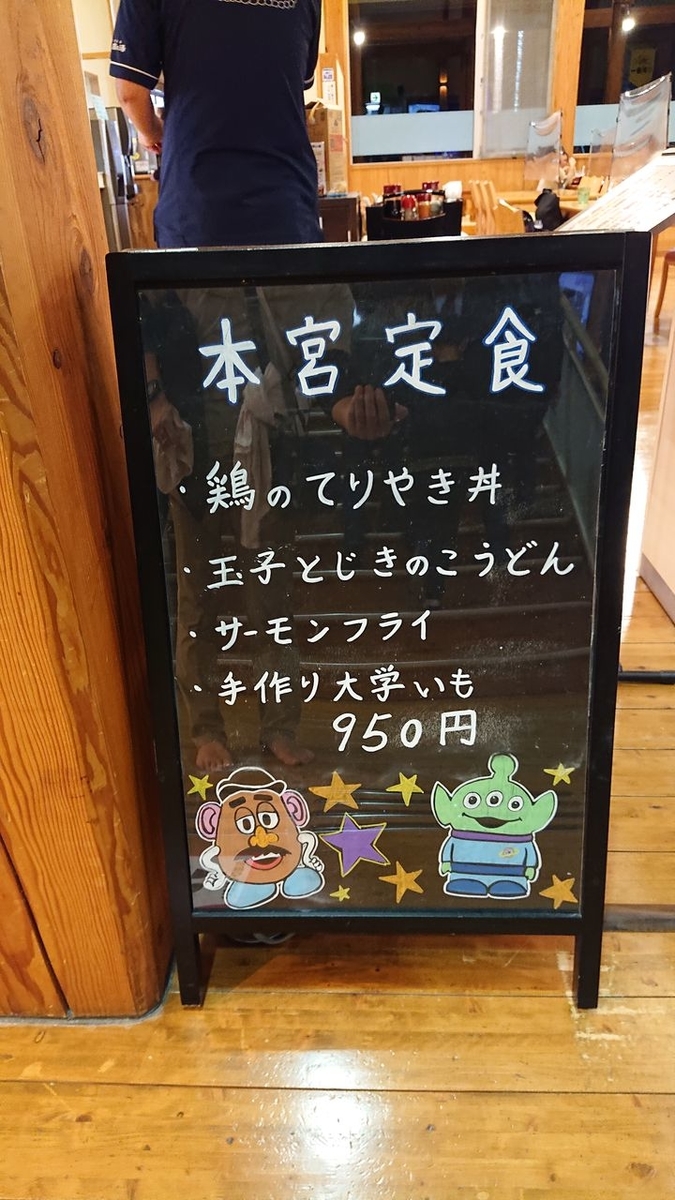 本宮定食
・鶏のてりやき丼
・玉子とじきのこうどん
・サーモンフライ
・手作り大学いも
950円